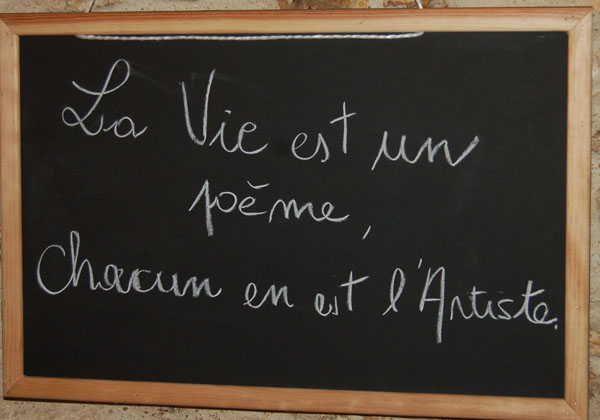 La Vie est un
poème,
Chacun en est l'Artiste.